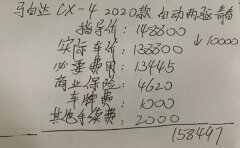 马自达 CX-4 2020款 自动两驱
指导价: 148800
实际车价: 138800 ↓10000
必要费用: 13445
商业保险: 4620
1000
其他手续费: 2000
158447